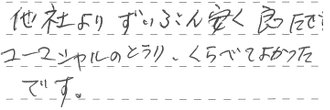 他社より ずいぶん安く 良たです
コーマシャルのとうり、くらべてよかった
です。